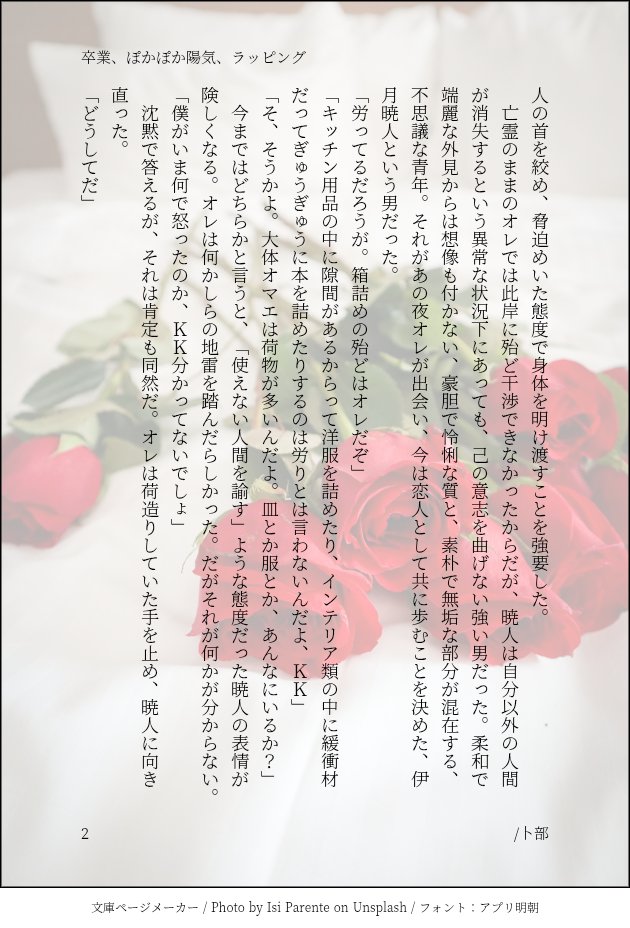 卒業、ぽかぽか陽気、ラッピング
人の首を絞め、脅迫めいた態度で身体を明け渡すことを強要した。
　亡霊のままのオレでは此岸に殆ど干渉できなかったからだが、暁人は自分以外の人間
が消失するという異常な状況下にあっても、己の意志を曲げない強い男だった。柔和で
端麗な外見からは想像も付かない、豪胆で怜悧な質と、素朴で無垢な部分が混在する、
不思議な青年。それがあの夜オレが出会い、今は恋人として共に歩むことを決めた、伊
月暁人という男だった。
「労ってるだろうが。箱詰めの殆どはオレだぞ」
「キッチン用品の中に隙間があるからって洋服を詰めたり、インテリア類の中に緩衝材
だってぎゅうぎゅうに本を詰めたりするのは労りとは言わないんだよ、ＫＫ」
「そ、そうかよ。大体オマエは荷物が多いんだよ。皿とか服とか、あんなにいるか？」
　今まではどちらかと言うと、「使えない人間を諭す」ような態度だった暁人の表情が
険しくなる。オレは何かしらの地雷を踏んだらしかった。だがそれが何かが分からない。
「僕がいま何で怒ったのか、ＫＫ分かってないでしょ」
　沈黙で答えるが、それは肯定も同然だ。オレは荷造りしていた手を止め、暁人に向き
直った。
「どうしてだ」
2
/卜部
文庫ページメーカー / Photo by Isi Parente on Unsplash / フォント：アプリ明朝